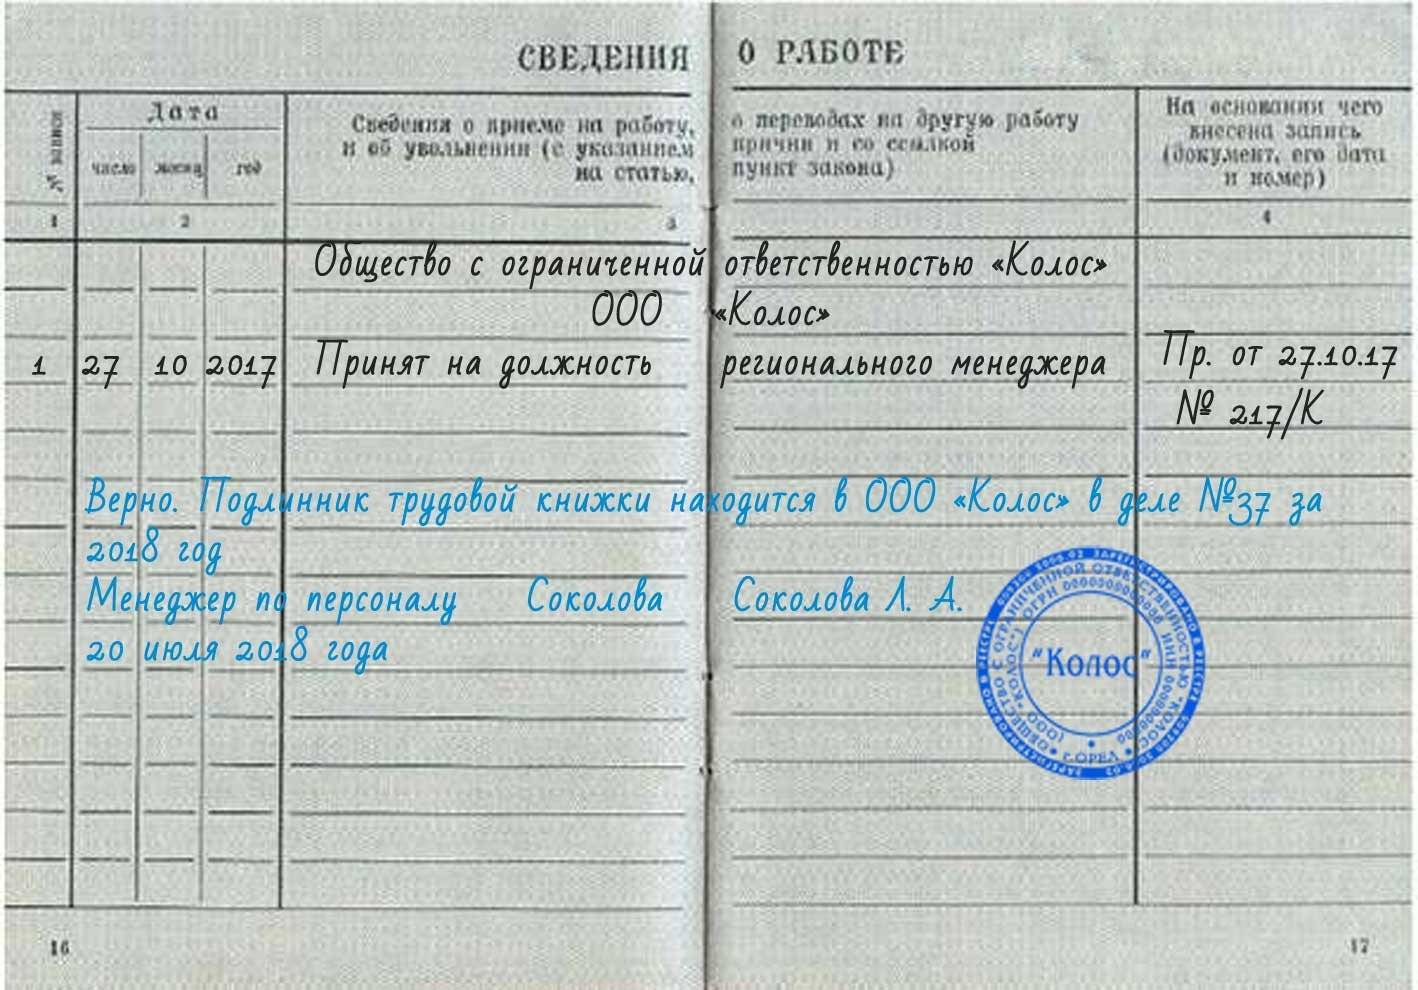 СВЕДЕНИЯ О РАБОТЕ
№ записи
Дата
число месяц год
Сведения о приеме на работу, о переводах на другую работу
и об увольнении (с указанием причин и со ссылкой
на статью, пункт закона)
На основании чего
внесена запись
(документ, его дата
и номер)
1 2 3 4
Общество с ограниченной ответственностью «Колос»
ООО «Колос»
1 27 10 2017 Принят на должность регионального менеджера Пр. от 27.10.17
№ 217/К
Верно. Подлинник трудовой книжки находится в ООО «Колос» в деле №37 за
2018 год
Менеджер по персоналу Соколова Соколова Л. А.
20 июля 2018 года
ЗАРЕГИСТРИРОВАНО В РЕЕСТРЕ
ОБЩЕСТВО С ОГРАНИЧЕННОЙ ОТВЕТСТВЕННОСТЬЮ "КОЛОС"
(ООО "КОЛОС") ОГРН 0000000000000 ИНН 0000000000
г.ОРЕЛ
"Колос"
16 17